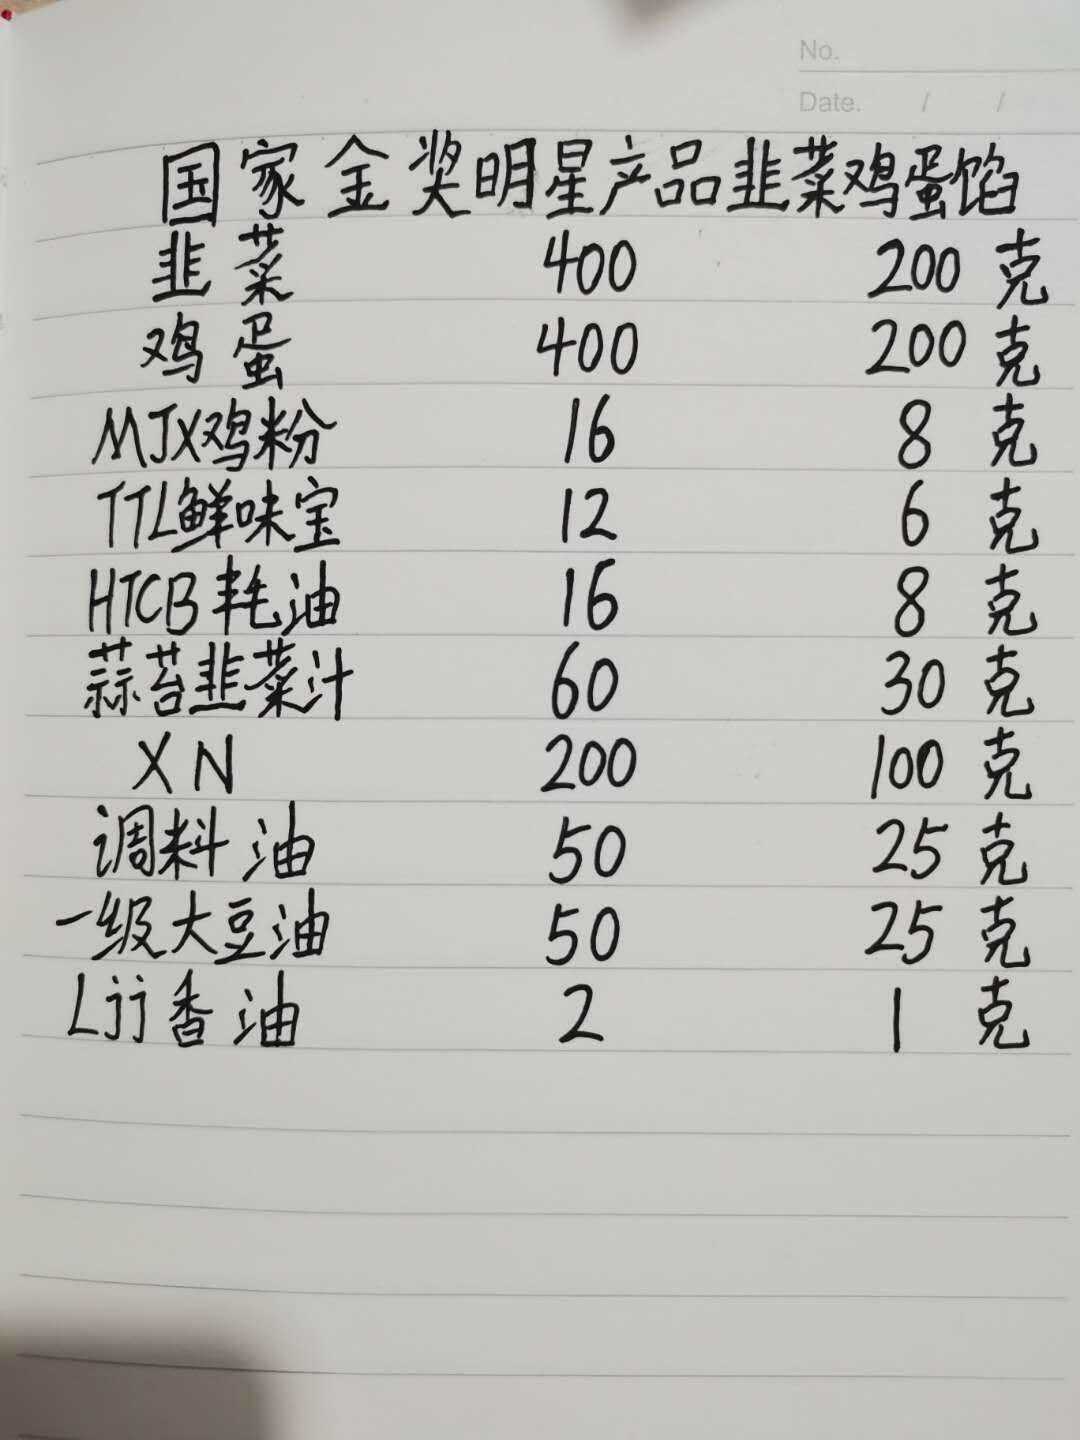 No.
Date. / /
国家金奖明星产品韭菜鸡蛋馅
韭菜 400 200 克
鸡蛋 400 200 克
MJX鸡粉 16 8 克
TTL鲜味宝 12 6 克
HTCB耗油 16 8 克
蒜苔韭菜汁 60 30 克
XN 200 100 克
调料油 50 25 克
一级大豆油 50 25 克
Ljj香油 2 1 克